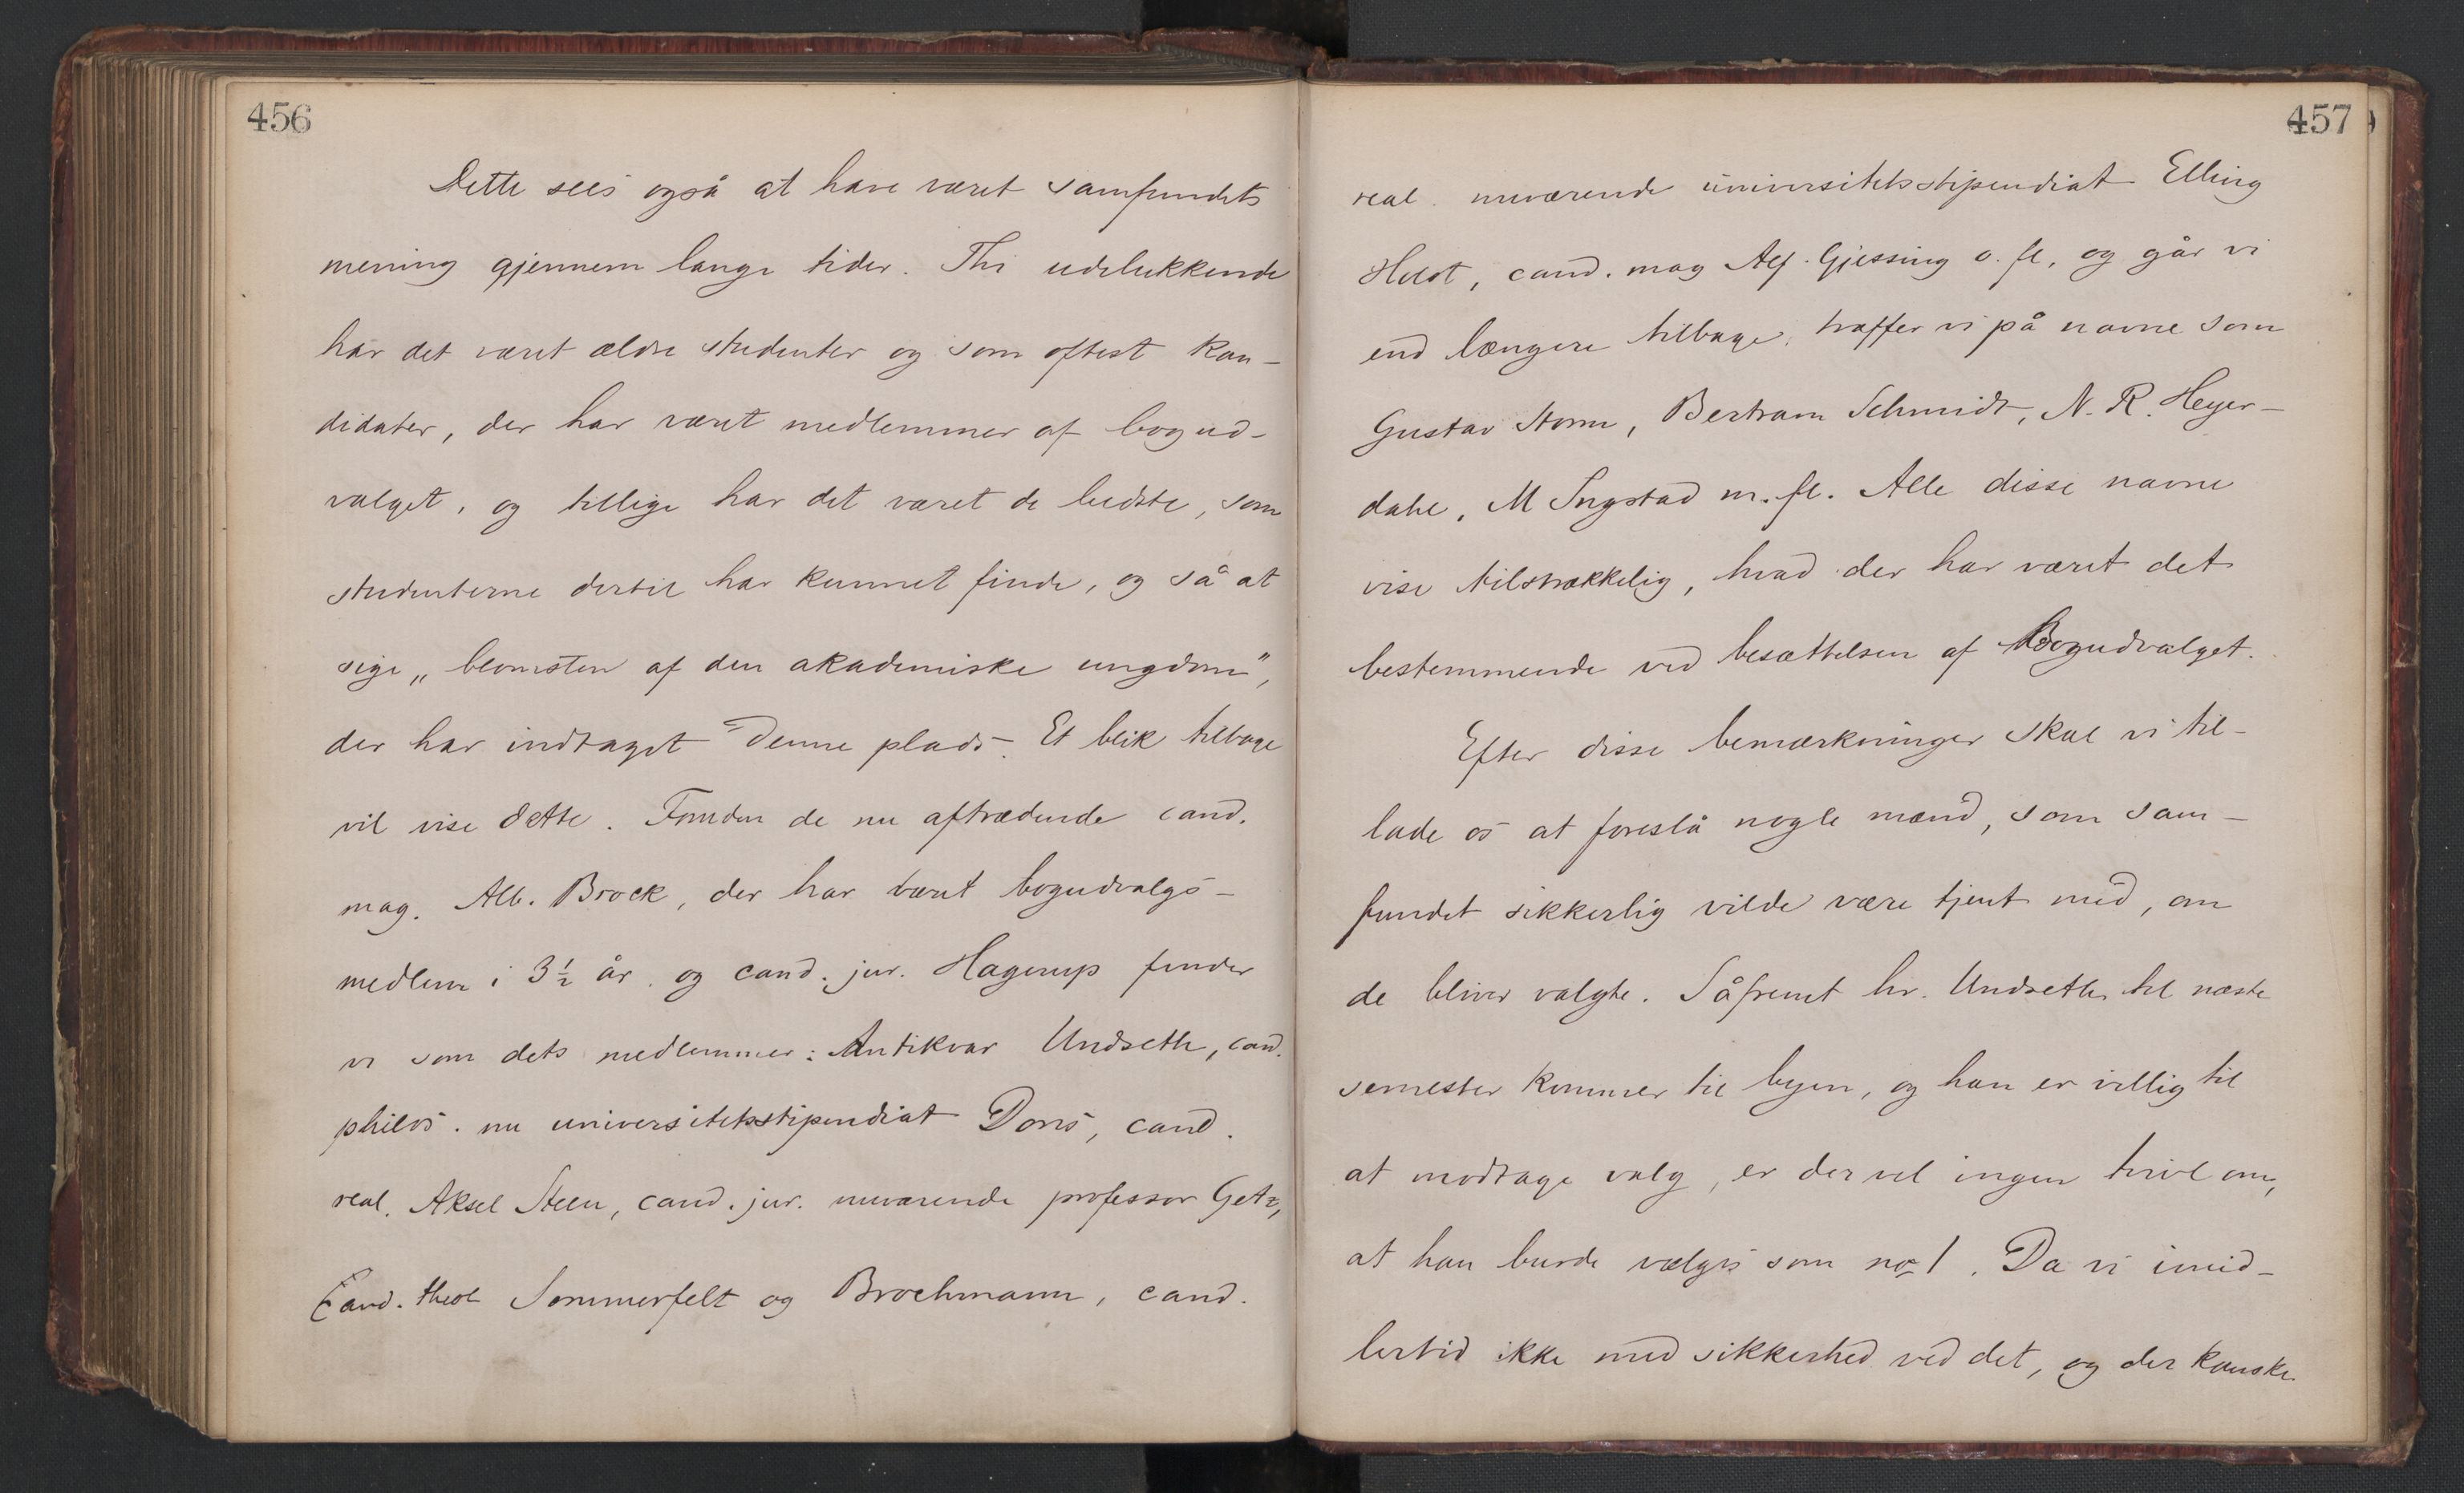 456
Dette sees også at have været samfundets
mening gjennem lange tider. Thi udelukkende
har det været ældre studenter og som oftest kan-
didater, der har været medlemmer af bogud-
valget, og tillige har det været de bedste, som
studenterne dertil har kunnet finde, og så at
sige „blomsten af den akademiske ungdom",
der har indtaget denne plads. Et blik tilbage
vil vise dette. Foruden de nu aftrædende cand.
mag. Alb. Brock, der har været bogudvalgs-
medlem i 3½ år og cand. jur. Hagerup finder
vi som dets medlemmer: Antikvar Undseth, cand.
philos. nu universitetsstipendiat Dons, cand.
real. Aksel Steen, cand. jur. nuværende professor Getz,
Cand. theol Sommerfelt og Brochmann, cand.
457
real. nuværende universitetsstipendiat Elling
Holst, cand. mag Alf. Gjessing o. fl, og går vi
end længere tilbage, træffer vi på navne som
Gustav Storm, Bertram Schmidt, N. R. Heyer-
dahl, M Ingstad m. fl. Alle disse navne
vise tilstrækkelig, hvad der har været det
bestemmende ved besættelsen af Bogudvalget.
Efter disse bemærkninger skal vi til-
lade os at foreslå nogle mænd, som sam-
fundet sikkerlig vilde være tjent med, om
de bliver valgte. Såfremt hr. Undseth til næste
semester kommer til byen, og han er villig til
at modtage valg, er der vel ingen tvivl om,
at han burde vælges som no 1. Da vi imid-
lertid ikke med sikkerhed ved det, og der kanske